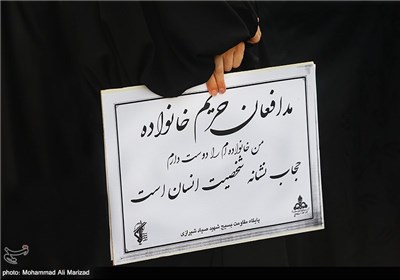 مدافعان حریم خانواده
من خانواده ام را دوست دارم
حجاب نشانه شخصیت انسان است
پایگاه مقاومت بسیج شهید صیاد شیرازی
photo: Mohammad Ali Marizad